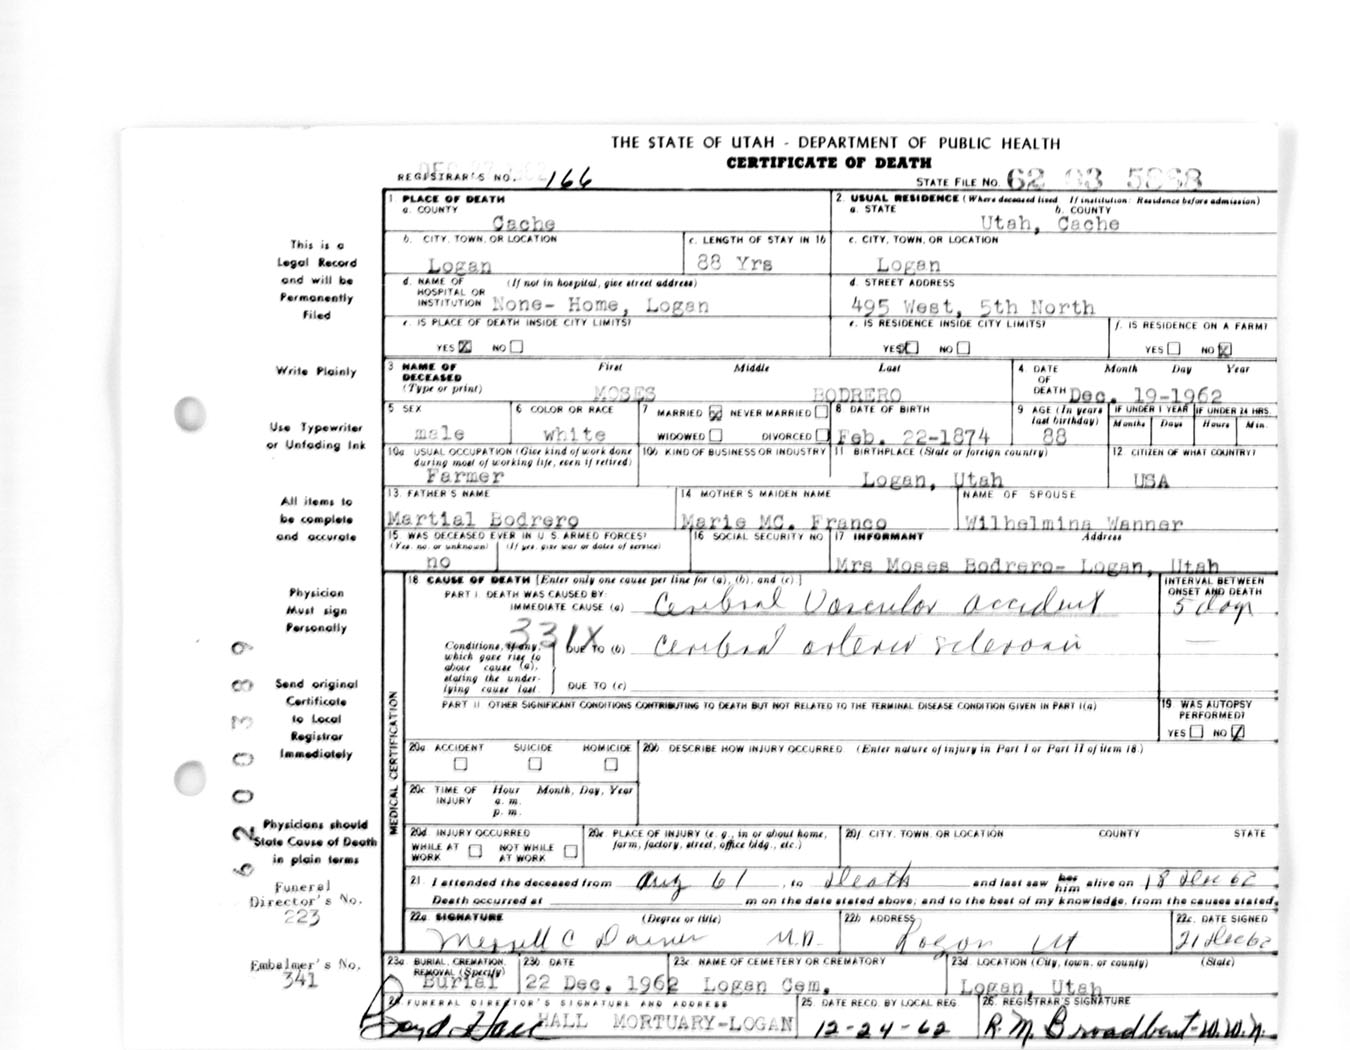 THE STATE OF UTAH - DEPARTMENT OF PUBLIC HEALTH
CERTIFICATE OF DEATH
REGISTRAR'S NO. 166
STATE FILE NO. 62 03
1. PLACE OF DEATH
a. COUNTY
Cache
2. USUAL RESIDENCE (Where deceased lived If institution: Residence before admission)
a. STATE b. COUNTY
Utah, Cache
b. CITY, TOWN, OR LOCATION
Logan
c. LENGTH OF STAY IN 1b
88 Yrs
c. CITY, TOWN, OR LOCATION
Logan
d. NAME OF HOSPITAL OR INSTITUTION (If not in hospital, give street address)
None- Home, Logan
d. STREET ADDRESS
495 West, 5th North
e. IS PLACE OF DEATH INSIDE CITY LIMITS?
YES X NO
e. IS RESIDENCE INSIDE CITY LIMITS?
YES X NO
f. IS RESIDENCE ON A FARM?
YES NO X
3 NAME OF DECEASED (Type or print) First Middle Last
MOSES BODRERO
4. DATE OF DEATH Month Day Year
Dec. 19-1962
5 SEX
male
6 COLOR OR RACE
white
7 MARRIED X NEVER MARRIED
WIDOWED DIVORCED
8 DATE OF BIRTH
Feb. 22-1874
9 AGE (In years last birthday)
88
IF UNDER 1 YEAR
Months Days
IF UNDER 24 HRS.
Hours Min.
10a USUAL OCCUPATION (Give kind of work done during most of working life, even if retired)
Farmer
10b KIND OF BUSINESS OR INDUSTRY
11 BIRTHPLACE (State or foreign country)
Logan, Utah
12 CITIZEN OF WHAT COUNTRY?
USA
13. FATHER'S NAME
Martial Bodrero
14 MOTHER'S MAIDEN NAME
Marie MC. Franco
NAME OF SPOUSE
Wilhelmina Wanner
15 WAS DECEASED EVER IN U S ARMED FORCES?
(Yes, no, or unknown) (If yes, give war or dates of service)
no
16 SOCIAL SECURITY NO
17 INFORMANT Address
Mrs Moses Bodrero- Logan, Utah
18 CAUSE OF DEATH [Enter only one cause per line for (a), (b), and (c).]
PART I. DEATH WAS CAUSED BY:
IMMEDIATE CAUSE (a) Cerebral Vascular accident
INTERVAL BETWEEN ONSET AND DEATH
5 days
331X
Conditions, if any, which gave rise to above cause (a), stating the underlying cause last.
DUE TO (b) Cerebral arterio sclerosis
DUE TO (c)
PART II OTHER SIGNIFICANT CONDITIONS CONTRIBUTING TO DEATH BUT NOT RELATED TO THE TERMINAL DISEASE CONDITION GIVEN IN PART I(a)
19 WAS AUTOPSY PERFORMED?
YES NO X
MEDICAL CERTIFICATION
20a ACCIDENT SUICIDE HOMICIDE
20b. DESCRIBE HOW INJURY OCCURRED (Enter nature of injury in Part I or Part II of item 18.)
20c TIME OF INJURY Hour Month, Day, Year
a. m.
p. m.
20d. INJURY OCCURRED
WHILE AT WORK NOT WHILE AT WORK
20e. PLACE OF INJURY (e. g., in or about home, farm, factory, street, office bldg., etc.)
20f. CITY, TOWN, OR LOCATION COUNTY STATE
21. I attended the deceased from Aug 61, to Death and last saw her him alive on 18 Dec 62
Death occurred at m on the date stated above; and to the best of my knowledge, from the causes stated.
22a. SIGNATURE (Degree or title)
Merrill C M.D.
22b ADDRESS
Logan Ut
22c. DATE SIGNED
21 Dec 62
23a BURIAL, CREMATION, REMOVAL (Specify)
Burial
23b DATE
22 Dec. 1962
23c NAME OF CEMETERY OR CREMATORY
Logan Cem.
23d LOCATION (City, town, or county) (State)
Logan, Utah
24 FUNERAL DIRECTOR'S SIGNATURE AND ADDRESS
Hall HALL MORTUARY-LOGAN
25. DATE RECD. BY LOCAL REG
12-24-62
26. REGISTRAR'S SIGNATURE
R. M. Broadbent-W.W.N.
This is a
Legal Record
and will be
Permanently
Filed
Write Plainly
Use Typewriter
or Unfading Ink
All items to
be complete
and accurate
Physician
Must sign
Personally
Send original
Certificate
to Local
Registrar
Immediately
Physicians should
State Cause of Death
in plain terms
Funeral
Director's No.
223
Embalmer's No.
341